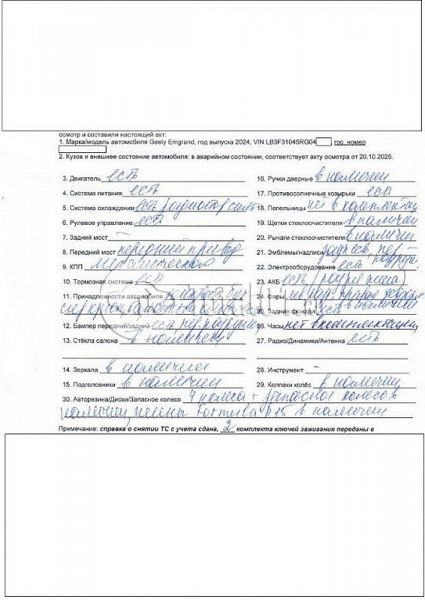 осмотр и составили настоящий акт:
1. Марка/модель автомобиля Geely Emgrand, год выпуска 2024, VIN LB3F31045RG04 гос. номер
2. Кузов и внешнее состояние автомобиля: в аварийном состоянии, соответствует акту осмотра от 20.10.2025.
3. Двигатель есть
16. Ручки дверные в наличии
4. Система питания есть
17. Противосолнечные козырьки есть
5. Система охлаждения есть радиатор
18. Пепельницы нет в комплектац
6. Рулевое управление есть
19. Щетки стеклоочистителя в наличии
7. Задний мост —
20. Рычаги стеклоочистителя в наличии
8. Передний мост передний привод
21. Эмблемы/надписи
9. КПП механическая
22. Электрооборудование есть
10. Тормозная система есть
23. АКБ есть
11. Принадлежности автомобиля
24. Фары правая
25. Задние фонари есть
12. Бампер передний/задний есть
26. Часы нет в комплектации
13. Стёкла салона в наличии
27. Радио/Динамики/Антенна есть
14. Зеркала в наличии
28. Инструмент –
15. Подголовники в наличии
29. Колпаки колёс в наличии
30. Авторезина/Диски/Запасное колесо 4 колеса + запасное колесо в
наличии шины Formula R15 в наличии
Примечание: справка о снятии ТС с учета сдана, 2 комплекта ключей зажигания переданы в